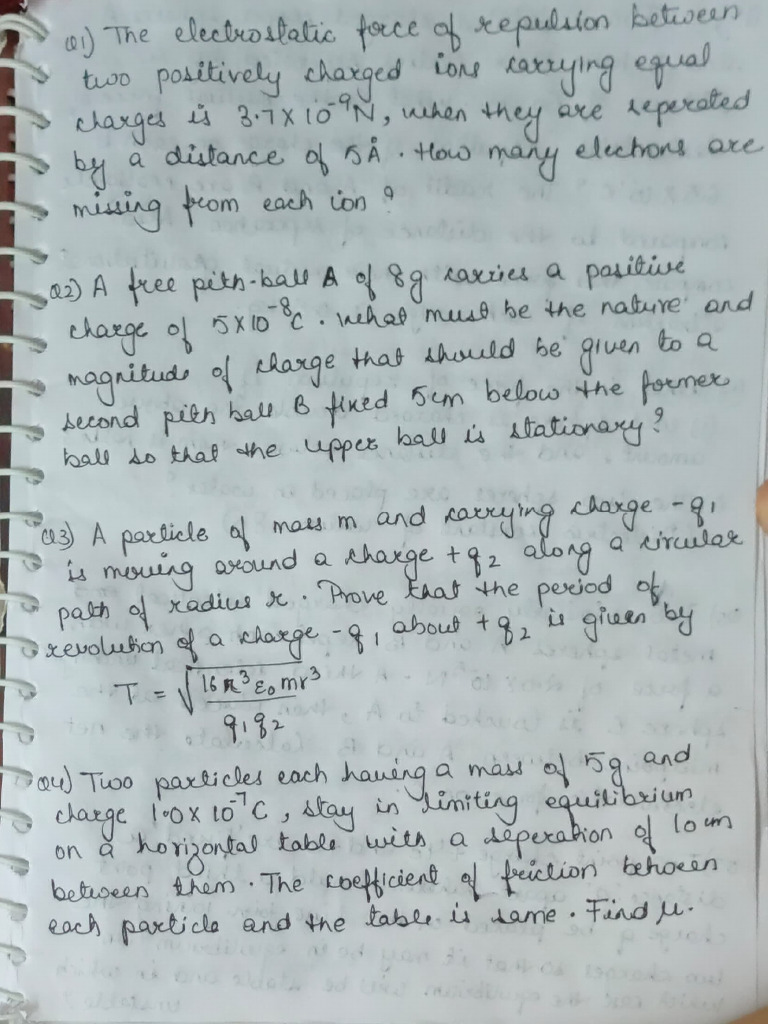 Q1) The electrostatic force of repulsion between
two positively charged ions carrying equal
charges is 3.7 X 10⁻⁹N, when they are seperated
by a distance of 5Å. How many electrons are
missing from each ion?
Q2) A free pith-ball A of 8g carries a positive
charge of 5X10⁻⁸C. What must be the nature and
magnitude of charge that should be given to a
second pith ball B fixed 5cm below the former
ball so that the upper ball is stationary?
Q3) A particle of mass m and carrying charge -q₁
is moving around a charge +q₂ along a circular
path of radius r. Prove that the period of
revolution of a charge -q₁ about +q₂ is given by
T = √(16π³ε₀mr³
q₁q₂)
Q4) Two particles each having a mass of 5g and
charge 1.0X10⁻⁷C, stay in limiting equilibrium
on a horizontal table with a seperation of 10cm
between them. The coefficient of friction between
each particle and the table is same. Find μ.